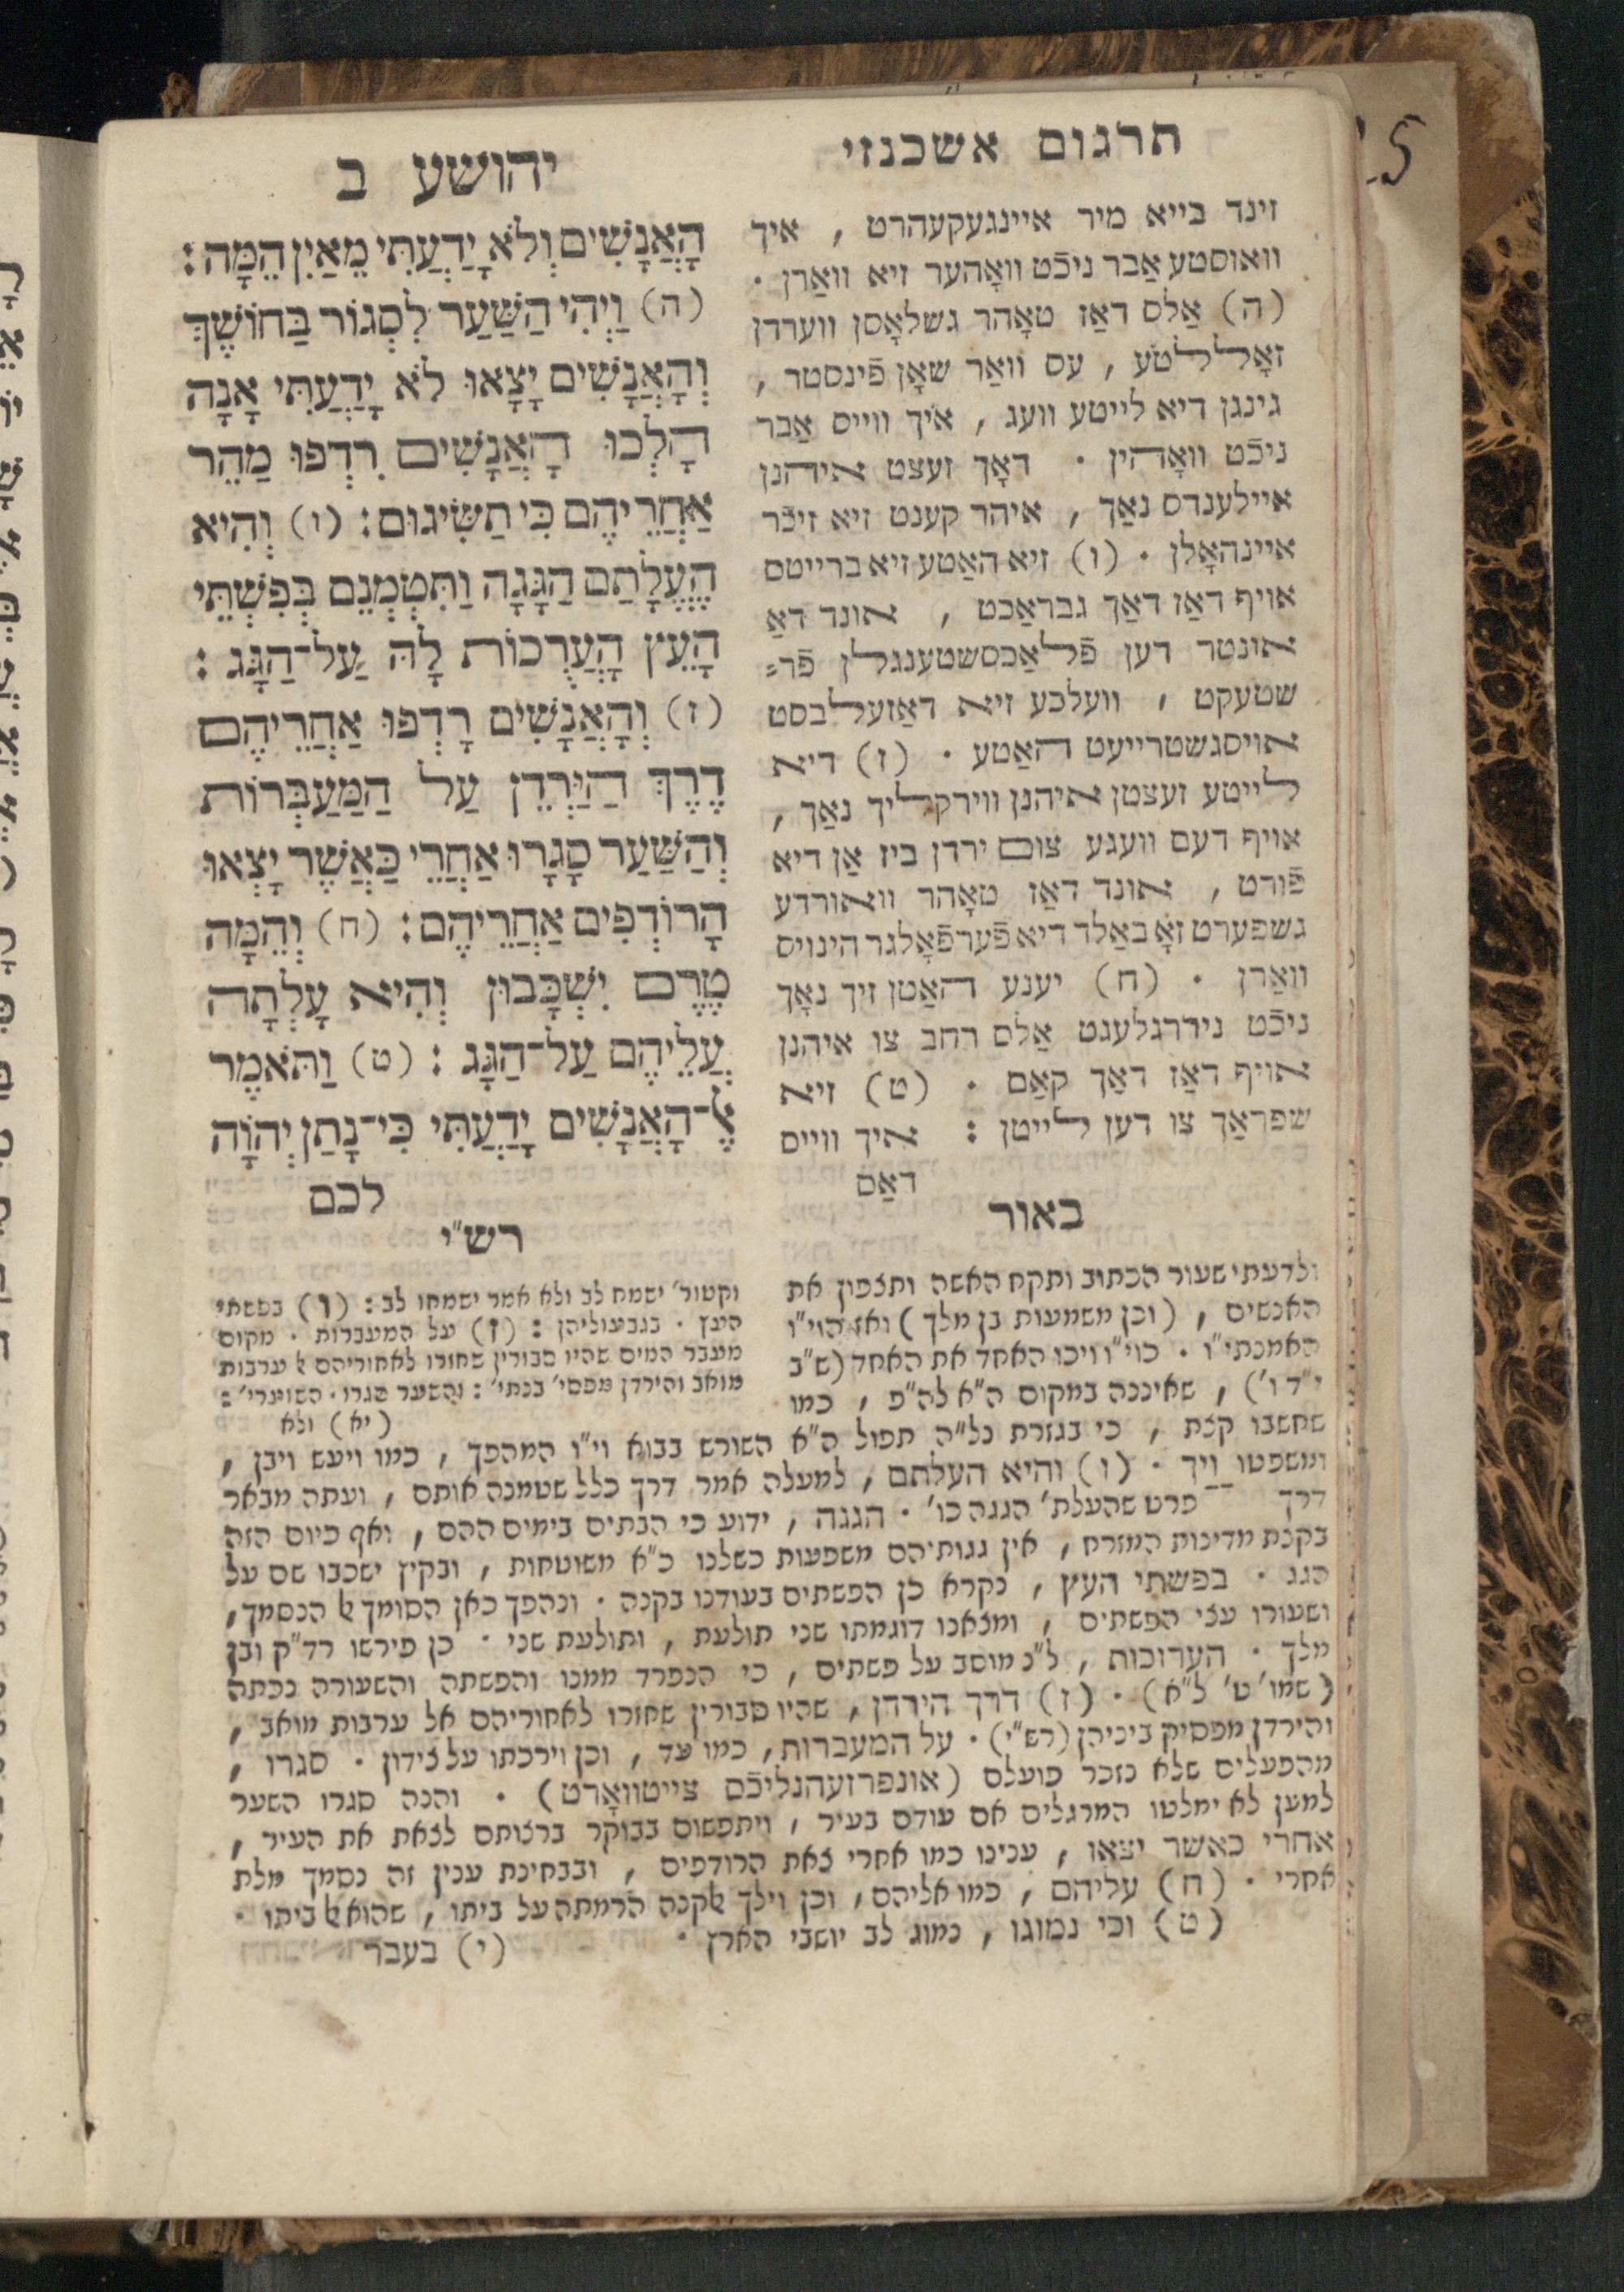 תרגום אשכנזי
זינד בייא מיר איינגעקעהרט , איך
וואוסטע אַבר ניכֿט וואָהער זיא וואַרן .
(ה) אַלס דאַז טאָהר גשלאָסן ווערדן
זאָללטע , עס וואַר שאָן פֿינסטר ,
גינגן דיא לייטע וועג , איך ווייס אַבר
ניכֿט וואָהין . דאָך זעצט איהנן
איילענדס נאַך , איהר קענט זיא זיכֿר
איינהאָלן . (ו) זיא האַטע זיא ברייטס
אויף דאַז דאַך גבראַכט , אונד דאַ
אונטר דען פֿלאַכסשטענגלן פֿר⸗
שטעקט , וועלכע זיא דאַזעלבסט
אויסגשטרייעט האַטע . (ז) דיא
לייטע זעצטן איהנן ווירקליך נאַך ,
אויף דעם וועגע צום ירדן ביז אַן דיא
פֿורט , אונד דאַז טאָהר וואורדע
גשפערט זאָ באַלד דיא פֿערפֿאָלגר הינויס
וואַרן . (ח) יענע האַטן זיך נאָך
ניכֿט נידרגלעגט אַלס רחב צו איהנן
אויף דאַז דאַך קאַם . (ט) זיא
שפראַך צו דען לייטן : איך ווייס
דאַס
יהושע ב
הָאֲנָשִׁים וְלֹא יָדַעְתִּי מֵאַיִן הֵמָּה :
(ה) וַיְהִי הַשַּׁעַר לִסְגּוֹר בַּחוֹשֶׁךְ
וְהָאֲנָשִׁים יָצָאוּ לֹא יָדַעְתִּי אָנָה
הָלְכוּ הָאֲנָשִׁים רִדְפוּ מַהֵר
אַחֲרֵיהֶם כִּי תַשִּׂיגוּם : (ו) וְהִיא
הֶעֱלָתַם הַגָּגָה וַתִּטְמְנֵם בְּפִשְׁתֵּי
הָעֵץ הָעֲרֻכוֹת לָהּ עַל־הַגָּג :
(ז) וְהָאֲנָשִׁים רָדְפוּ אַחֲרֵיהֶם
דֶּרֶךְ הַיַּרְדֵּן עַל הַמַּעְבְּרוֹת
וְהַשַּׁעַר סָגָרוּ אַחֲרֵי כַּאֲשֶׁר יָצְאוּ
הָרוֹדְפִים אַחֲרֵיהֶם : (ח) וְהֵמָּה
טֶרֶם יִשְׁכָּבוּן וְהִיא עָלְתָה
עֲלֵיהֶם עַל־הַגָּג : (ט) וַתֹּאמֶר
אֶל־הָאֲנָשִׁים יָדַעְתִּי כִּי־נָתַן יְהוָֹה
לכם
באור
ולדעתי שעור הכתוב ותקח האשה ותצפון את
האנשים , (וכן משמעות בן מלך) ואז הוי״ו
האמנתי״ו . כוי״ו ויכו האחד את האחד (ש״ב
י״ד ו׳) , שאיננה במקום ה״א לה״פ , כמו
רש״י
וקטור׳ ישמח לב ולא אמר ישמחו לב : (ו) בפשתי
העץ . בגבעוליהן : (ז) על המעברות . מקום
מעבר המים שהיו סבורין שחזרו לאחוריהם אל ערבות
מואב והירדן מפסי׳ בנתי׳ : והשער סגרו . השוערי׳ :
(יא) ולא
שחשבו קצת , כי בגזרת נל״ה תפול ה״א השורש בבוא וי״ו המהפך , כמו ויעש ויבן ,
ומשפטו ויך . (ו) והיא העלתם , למעלה אמר דרך כלל שטמנה אותם , ועתה מבאר
דרך פרט שהעלת׳ הגגה כו׳ . הגגה , ידוע כי הבתים בימים ההם , ואף כיום הזה
בקצת מדינות המזרח , אין גגותיהם משפעות כשלנו כ״א משוטחות , ובקיץ ישכבו שם על
הגג . בפשתי העץ , נקרא כן הפשתים בעודנו בקנה . ונהפך כאן הסומך אל הנסמך ,
ושעורו עצי הפשתים , ומצאנו דוגמתו שני תולעת , ותולעת שני . כן פירשו רד״ק ובן
מלך . הערוכות , ל״נ מוסב על פשתים , כי הנפרד ממנו והפשתה והשעורה נכתה
(שמו׳ ט׳ ל״א) . (ז) דרך הירדן , שהיו סבורין שחזרו לאחוריהם אל ערבות מואב ,
והירדן מפסיק ביניהן (רש״י) . על המעברות , כמו עד , וכן וירכתו על צידון . סגרו ,
מהפעלים שלא נזכר פועלם (אונפרזעהנליכֿם צייטוואָרט) . והנה סגרו השער
למען לא ימלטו המרגלים אם עודם בעיר , ויתפשום בבוקר ברצותם לצאת את העיר ,
אחרי כאשר יצאו , ענינו כמו אחרי צאת הרודפים , ובבחינת ענין זה נסמך מלת
אחרי . (ח) עליהם , כמו אליהם , וכן וילך אלקנה הרמתה על ביתו , שהוא אל ביתו .
(ט) וכי נמוגו , נמוג לב יושבי הארץ .
(י) בעבר